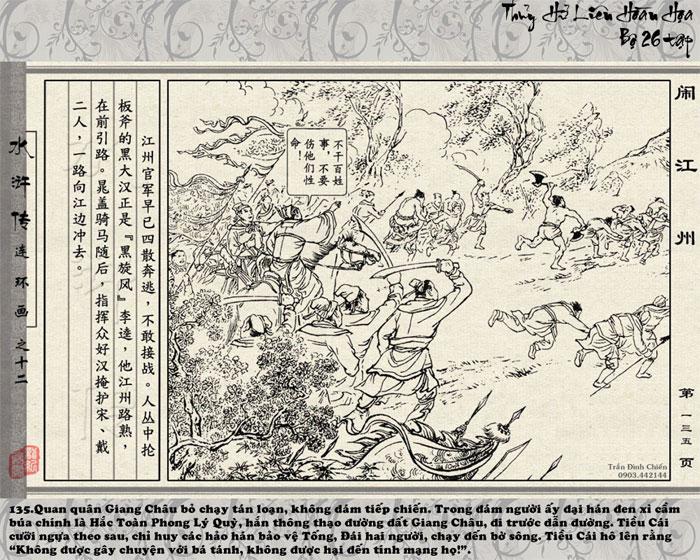 Thủy Hử Liên Hoàn Họa
Bộ 26 tập
闹江州
第一三五页
水浒传连环画之十二
江州官军早已四散奔逃，不敢接战。人丛中抡
板斧的黑大汉正是『黑旋风』李逵，他江州路熟，
在前引路。晁盖骑马随后，指挥众好汉掩护宋、戴
二人，一路向江边冲去。
不干百姓
事，不要
伤他们性
命！
Trần Đình Chiến
0903.442144
135.Quan quân Giang Châu bỏ chạy tán loạn, không dám tiếp chiến. Trong đám người ấy đại hán đen xì cầm
búa chính là Hắc Toàn Phong Lý Quỳ, hắn thông thạo đường đất Giang Châu, đi trước dẫn đường. Tiều Cái
cưỡi ngựa theo sau, chỉ huy các hảo hán bảo vệ Tống, Đái hai người, chạy đến bờ sông. Tiều Cái hô lên rằng
“Không được gây chuyện với bá tánh, không được hại đến tính mạng họ!”.